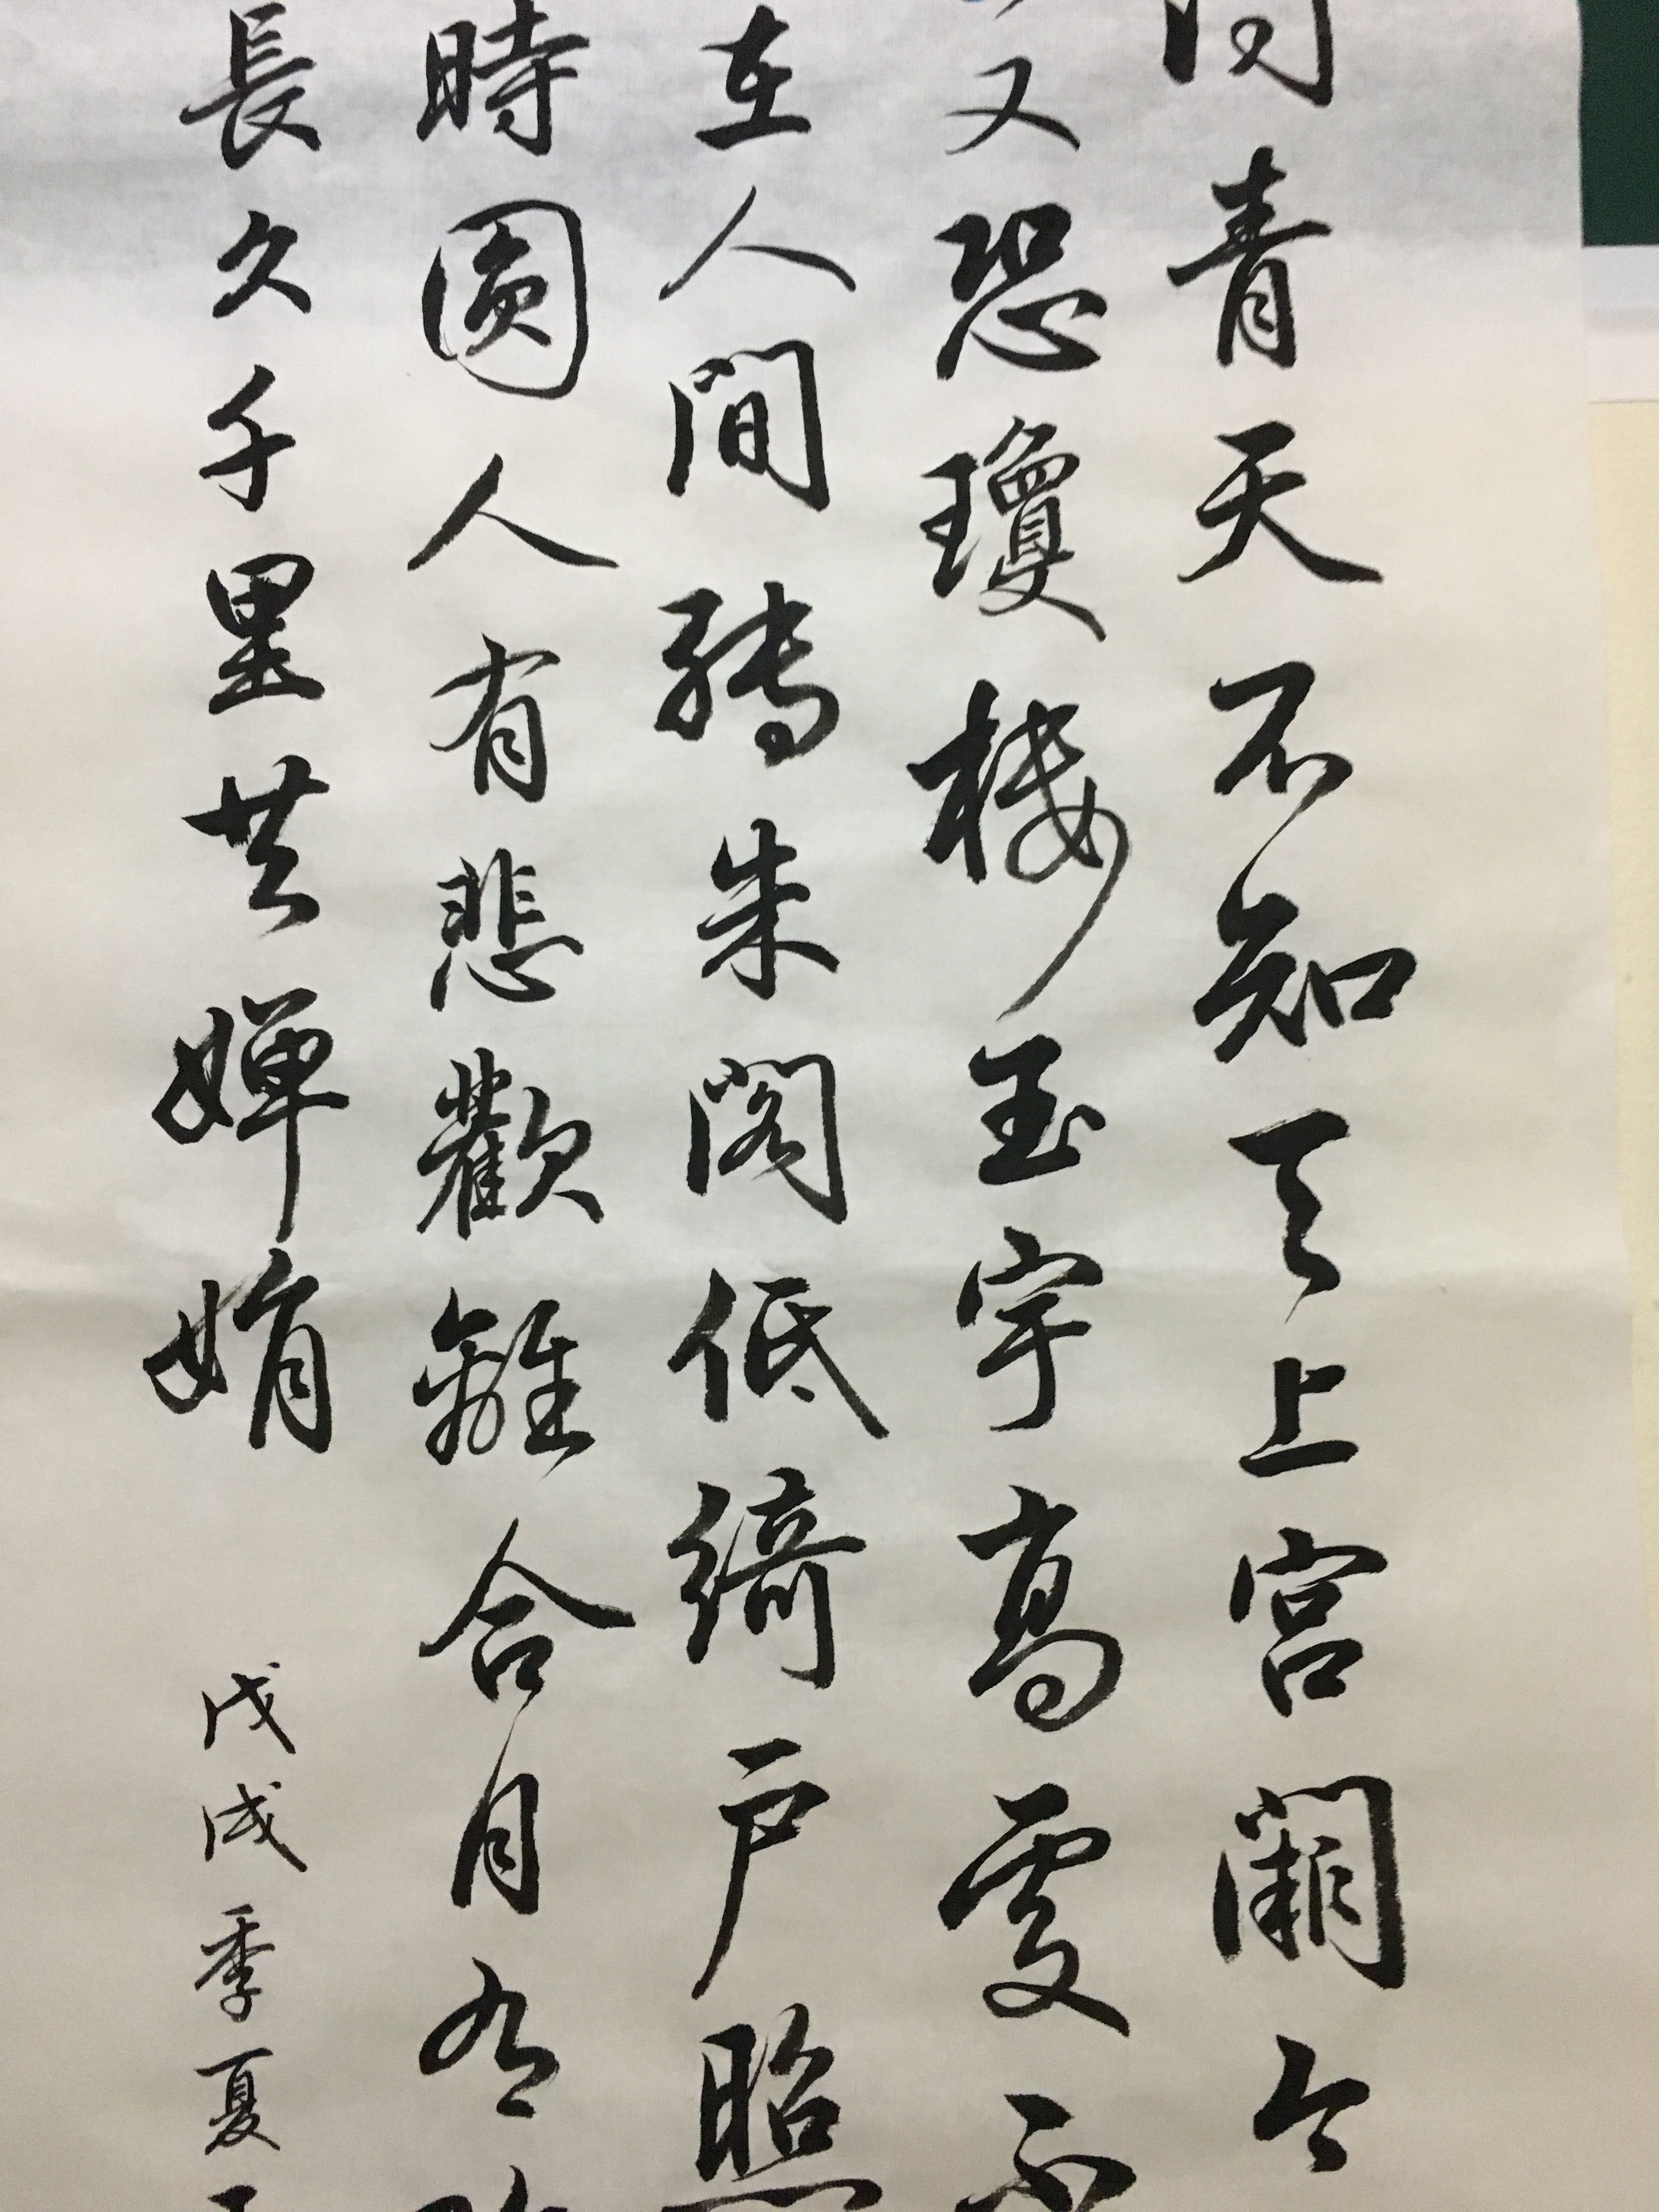 問青天不知天上宮闕今
又恐瓊樓玉宇高處不
在人間轉朱閣低綺戶照
時圓人有悲歡離合月有陰
長久千里共嬋娟
戊戌季夏